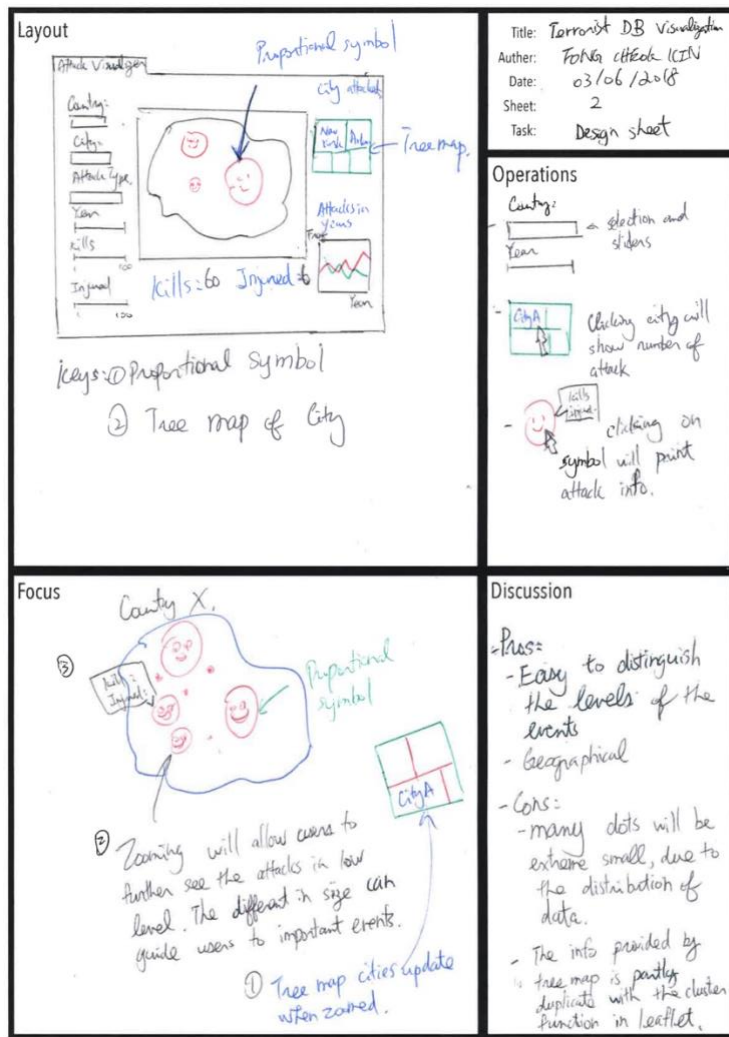 Layout
Attack Visualizer
Proportional symbol
Country:
City:
Attack Type
Year
Kills
100
Injured
100
City attacks
New York
Tree map.
Attacks in years
Freq
Year
Kills=60 Injured=6
Keys: ① Proportional symbol
② Tree map of City
Title: Terrorist DB Visualization
Auther: TONG CHEOK KIN
Date: 03/06/2018
Sheet: 2
Task: Design sheet
Operations
- Country:
selection and
sliders
Year
- City A
Clicking city will
show number of
attack
- Kills
Injured:
clicking on
symbol will print
attack info.
Focus
Country X.
③
Kills:
Injured:
Proportional
symbol
City A
② Zooming will allow users to
further see the attacks in low
level. The different in size can
guide users to important events.
① Tree map cities update
when zoomed.
Discussion
- Pros:
- Easy to distinguish
the levels of the
events
- Geographical
- Cons:
- many dots will be
extreme small, due to
the distribution of
data.
- The info provided by
tree map is partly
duplicate with the cluster
function in leaflet.